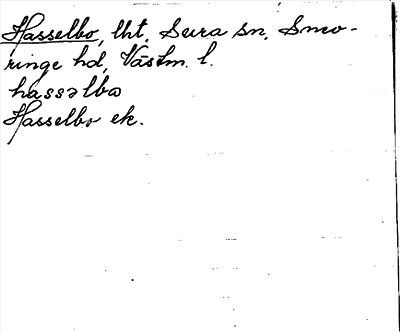 Hasselbo, lht, Sura sn, Snev-
ringe hd, Västm. l.
hassəlbω
Hasselbo ek.